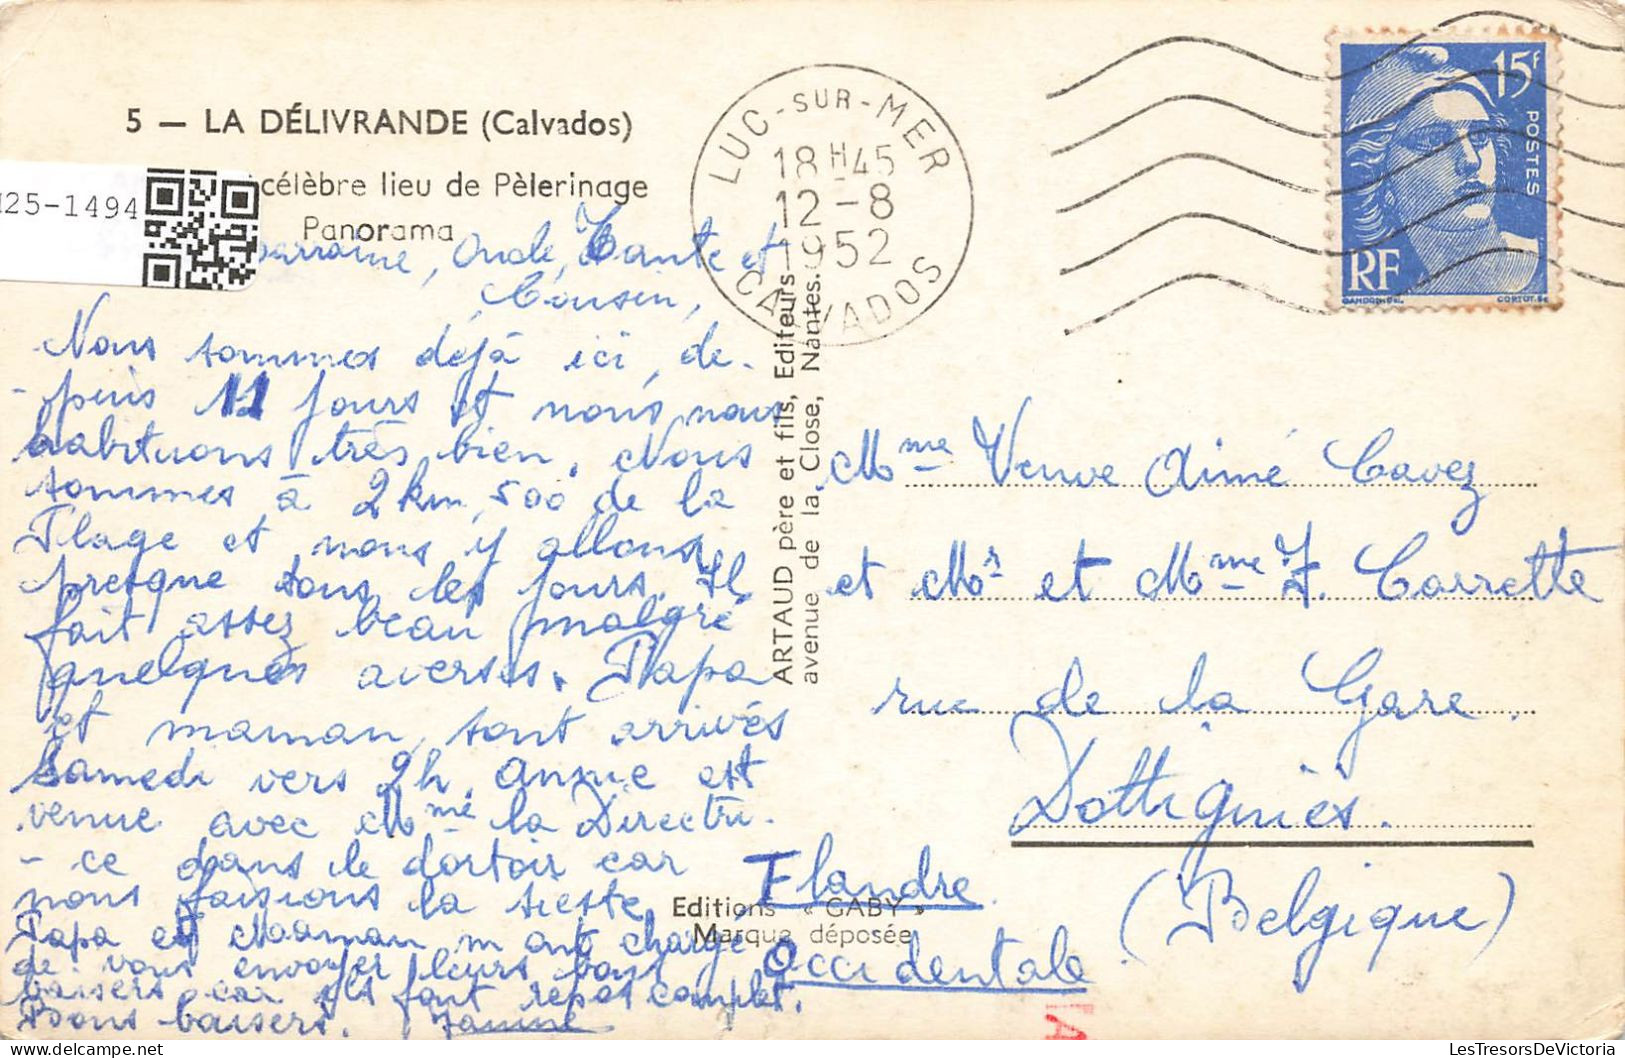 5 — LA DÉLIVRANDE (Calvados)
célèbre lieu de Pèlerinage
Panorama
25-1494
LUC-SUR-MER
18H45
12-8
1952
CALVADOS
15f
POSTES
RF
GANDON DEL.
CORTOT. SC
Marraine, Oncle, Tante et
Cousin,
Nous sommes déjà ici, de-
-puis 11 jours et nous nous
habituons très bien. Nous
sommes à 2 km,500 de la
Plage et nous y allons
presque tous les jours. Il
fait assez beau malgré
quelques averses. Papa
et maman sont arrivés
Samedi vers 2h. Annie est
venue avec Mme la Directri-
-ce dans le dortoir car
nous faisions la sieste
Papa et Maman m'ont chargé
de vous envoyer leurs bons
baisers car ils font repos complet.
Bons baisers. Janine
ARTAUD père et fils, Editeurs
avenue de la Close, Nantes.
Editions « GABY »
Marque déposée
Mme Veuve Aimé Cavez
et Mr et Mme J. Carrette
rue de la Gare.
Dottignies.
Flandre
(Belgique)
Occidentale
LesTresorsDeVictoria